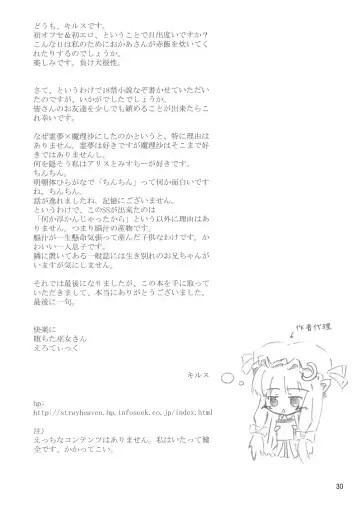 どうも、キルスです。
初オフセ&初エロ、ということで目出度いですか?
こんな日は私のためにおかあさんが赤飯を炊いてく
れたりするのでしょうか。
楽しみです。負け犬根性。
さて、というわけで18禁小説なぞ書かせていただい
たのですが、いかがでしたでしょうか。
皆さんのお友達を少しでも鎮めることが出来たらこ
れ幸いです。
なぜ霊夢×魔理沙にしたのかというと、特に理由は
ありません。霊夢は好きですが魔理沙はそこまで好
きではありませんし。
何を隠そう私はアリスとみすちーが好きです。
ちんちん。
明朝体ひらがなで「ちんちん」って何か面白いです
ね。ちんちん。
話が逸れましたね、記憶にございません。
というわけで、このSSが出来たのは
「何か浮かんじゃったから」という以外に理由はあ
りません。つまり脳汁の産物です。
脳汁が一生懸命気張って産んだ子供なわけです。か
わいい一人息子です。
隣に置いてある一般誌には生き別れのお兄ちゃんが
いますが気にしません。
それでは最後になりましたが、この本を手に取って
いただきまして、本当にありがとうございました。
最後に一句。
快楽に
堕ちた巫女さん
えろてぃっく
キルス
作者代理
hp:
http://strayheaven.hp.infoseek.co.jp/index.html
注)
えっちなコンテンツはありません。私はいたって健
全です。かかってこい。
30